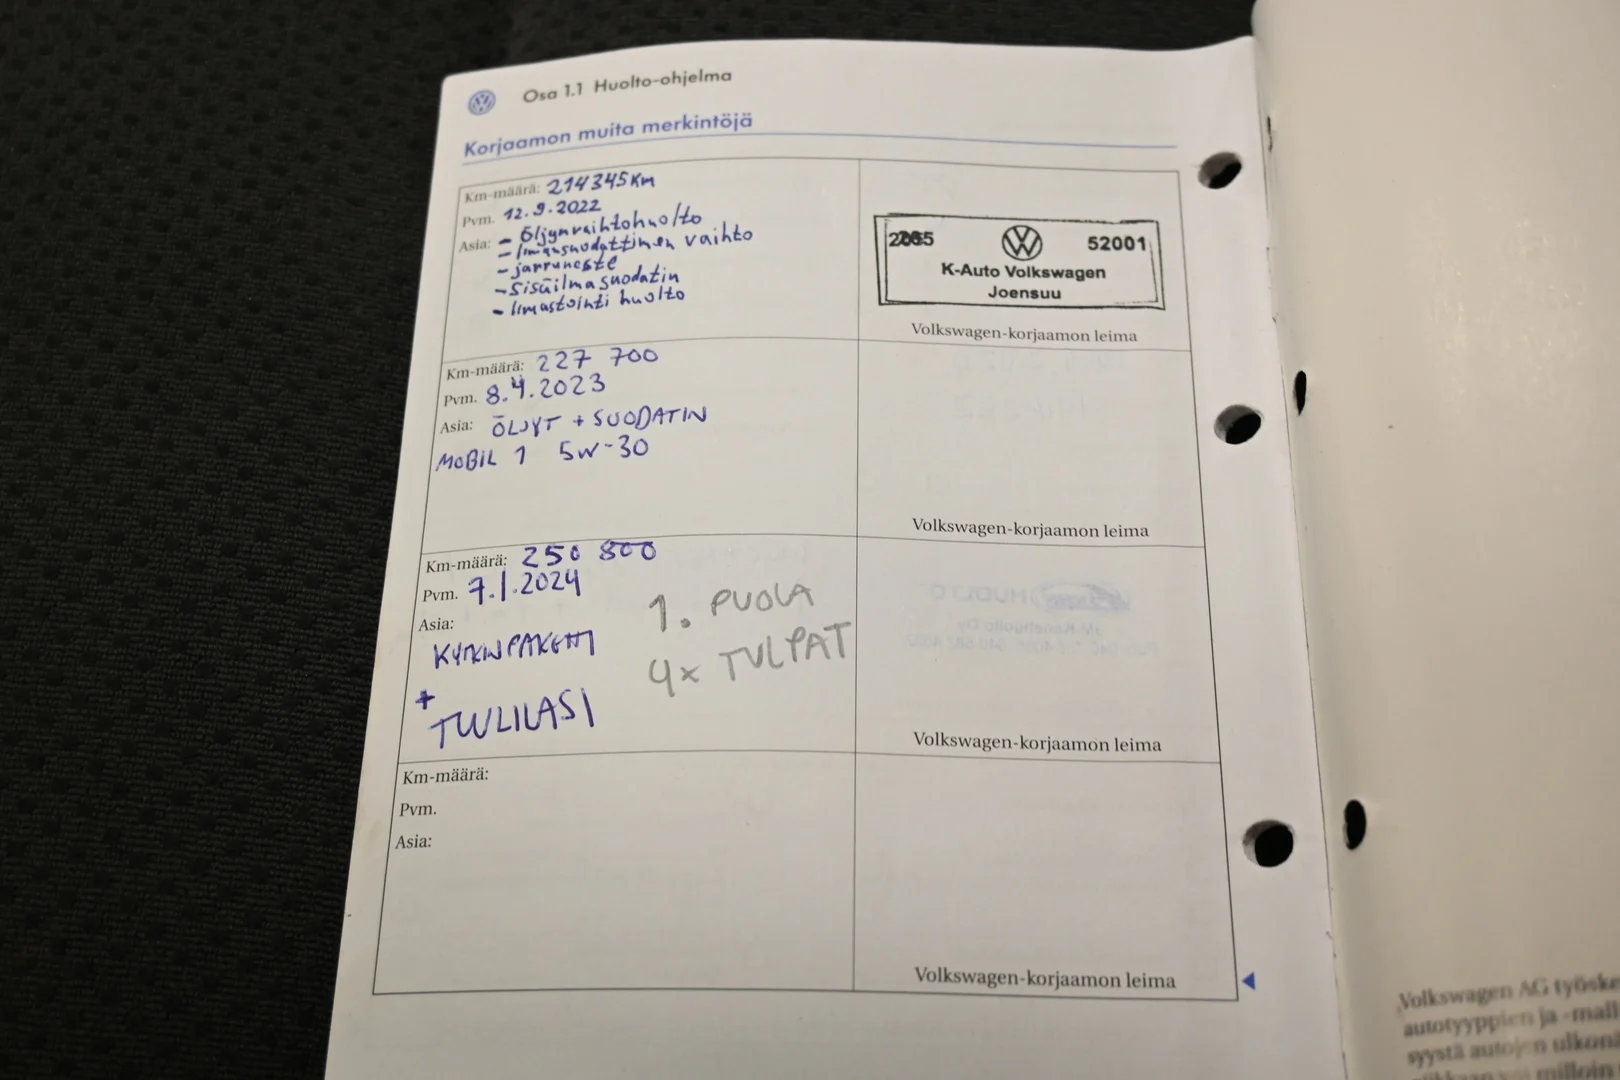 Osa 1.1 Huolto-ohjelma
Korjaamon muita merkintöjä
Km-määrä: 214345 Km
Pvm. 12.9.2022
Asia: - Öljynvaihtohuolto
- Ilmansuodattimen vaihto
- jarruneste
- Sisäilmasuodatin
- Ilmastointi huolto
2265 52001
K-Auto Volkswagen
Joensuu
Volkswagen-korjaamon leima
Km-määrä: 227 700
Pvm. 8.4.2023
Asia: ÖLJYT + SUODATIN
MOBIL 1 5W-30
Volkswagen-korjaamon leima
Km-määrä: 250 800
Pvm. 7.1.2024
Asia:
KYTKINPAKETTI
+
TUULILASI
1. PUOLA
4x TULPAT
Volkswagen-korjaamon leima
Km-määrä:
Pvm.
Asia:
Volkswagen-korjaamon leima
Volkswagen AG työske
autotyyppien ja -mall
syystä autojen ulkonä
milloin